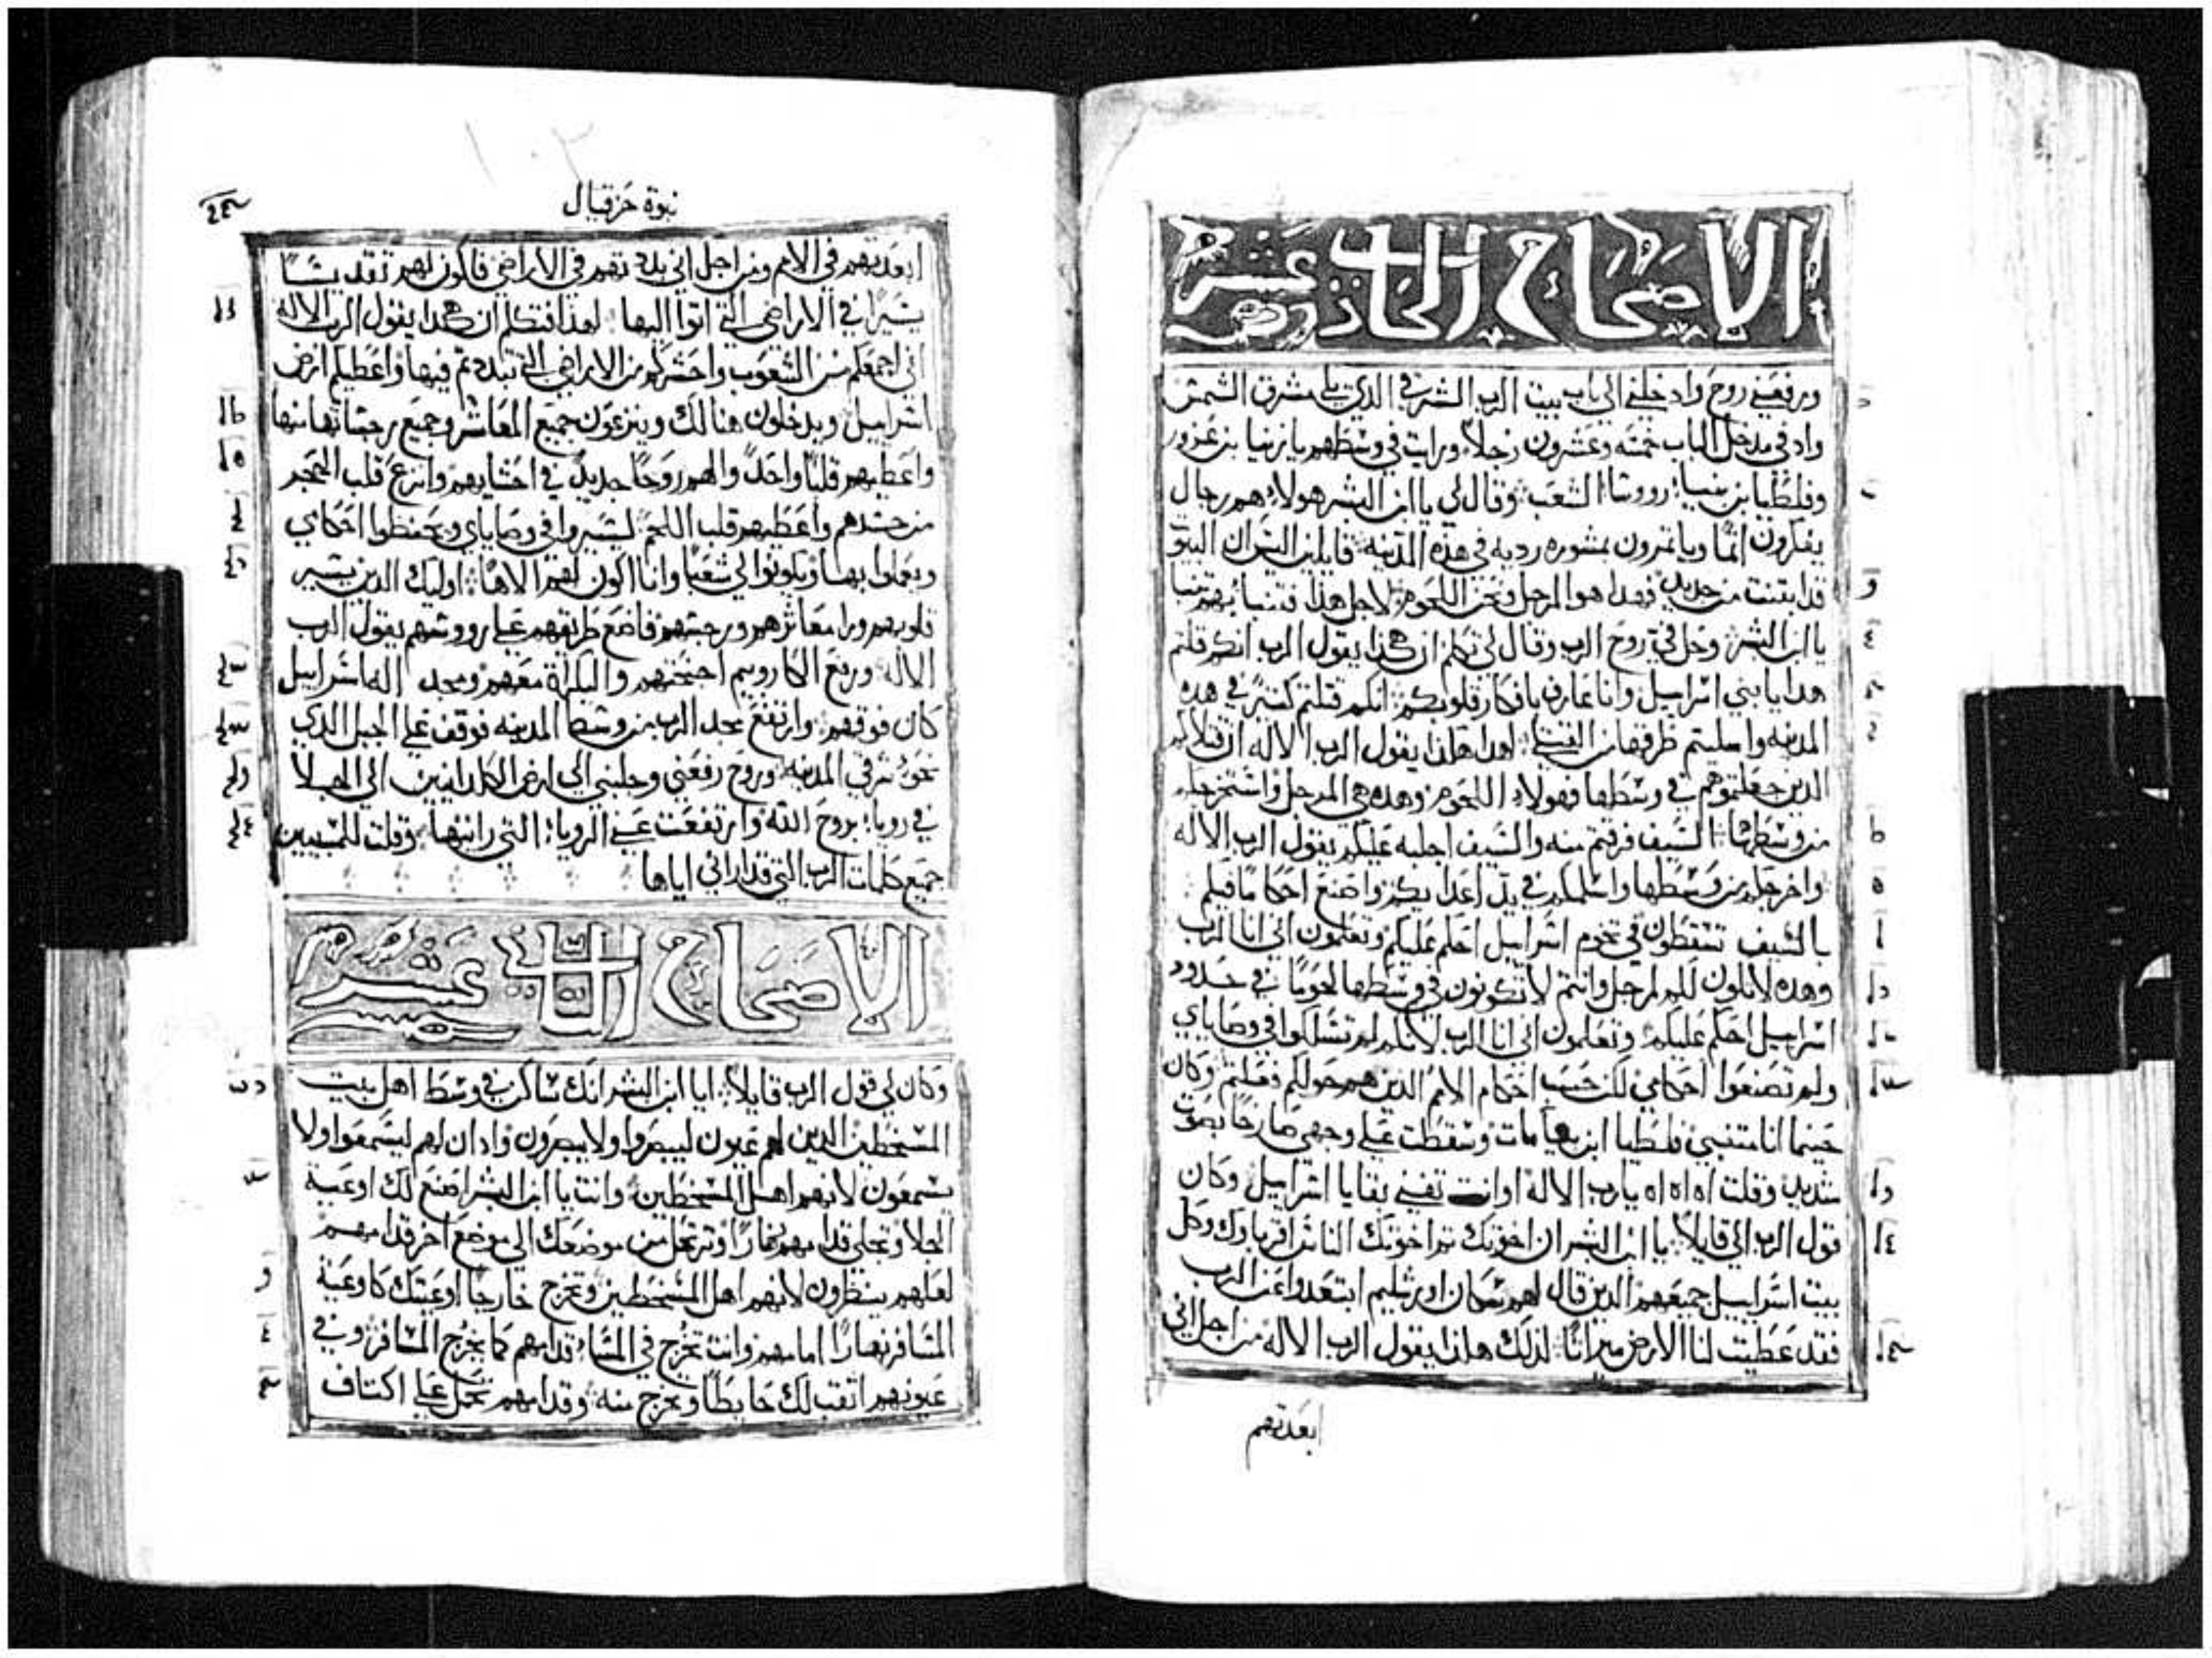 الاصحاح الحادي عشر
ورفعني روح وادخلني الي باب بيت الرب الشرقي الذي يلي مشرق الشمس
واد في مدخل الباب خمسه وعشرون رجلاً ورايت في وسطهم يازنيا بن عزور
وفلطيا بن بنيا رووسا الشعب وقال لي يا ابن البشر هولاء هم رجال
يفكرون اثماً وياتمرون بمشوره رديه في هذه المدينه قايلين اليس البيوت
قد ابتنت من جديد فهدا هوا المرجل ونحن اللحوم لاجل هذا فتنبا بهم تنبا
يا ابن البشر وحل في روح الرب وقال لي تكلم ان هكذا يقول الرب انكم قلتم
هدا يا بني اسراييل وانا عارف بافكار قلوبكم انكم قتلتم كتيرً في هده
المدينه واملیتم طرقها من القتلي لهدا هاذا يقول الرب الاله ان قتلاكم
الدين جعلتموهم في وسطها فهولاء اللحوم وهده هي المرجل واستخرجكم
من وسطها السيف فزعتم منه والسيف اجلبه عليكم يقول الرب الاله
واخرجكم من وسطها واسلمكم في يد اعدايكم واصنع احكاماً فيكم
بالسيف تسقطون في تخوم اسراييل احكم عليكم وتعلمون اني انا الرب
وهده لا تكون لكم لمرجل وانتم لا تكونون في وسطها لحوماً في حدود
اسراييل احكم عليكم وتعلمون اني انا الرب لانكم لم تسلكوا في وصاياي
ولم تصنعوا احكامي لكن حسب احكام الامم الدين هم حولكم فعلتم وكان
حينما انا متنبي فلطيا ابن بنيا مات وسقطت علي وجهي صارخاً بصوت
شديد وقلت اه اه اه يارب الاله اوانت تفني بقايا اسراييل وكان
قول الرب الي قايلاً يا ابن البشر ان اخوتك تم اخوتك الناس اقرباوك وكل
بيت اسراييل جميعهم الدين قال لهم سكان اورشليم ابتعدوا عن الرب
فقد عطيت لنا الارض ميراثاً لذلك هاذا يقول الرب الاله من اجل اني
ابعدتهم
نبوة حزقيال
ابعدتهم في الامم ومن اجل اني بددتهم في الاراضي فاكون لهم تقديساً
يسيراً في الاراضي التي اتوا اليها لهذا فتكلم ان هكدا يقول الرب الاله
اني اجمعكم من الشعوب واحشركم من الاراضي التي تبددتم فيها واعطيكم ارض
اسراييل ويدخلون هنالك وينزعون جميع المعاثر وجميع رجساتها منها
واعطيهم قلباً واحداً والهم روحاً جديدً في احشايهم وانزع قلب الحجر
من جسدهم واعطيهم قلب اللحم ليسيروا في وصاياي ويحفظوا احكامي
ويعملوا بها ويكونوا لي شعباً وانا اكون لهم الاهاً اوليك الدين يسير
قلوبهم ورا معاثرهم ورجسهم فاضع طريقهم علي رووسهم يقول الرب
الاله ورفع الكاروبيم اجنحتهم والبكراة معهم ومجد اله اسراييل
كان فوقهم وارتفع مجد الرب من وسط المدينه فوقف علي الجبل الدي
نحو شرقي المدينه وروح رفعني وجلبني الي ارض الكلدانيين الي الجلا
في رويا بروح الله وارتفعت عني الرويا التي راتيها وقلت للمسبيين
جميع كلمات الرب التي قد اراني اياها
الاصحاح الثاني عشر
وكان لي قول الرب قايلاً ايا ابن البشر انك ساكن في وسط اهل بيت
المسخطين الدين لهم عيون ليبصروا ولا يبصرون وادان لهم ليسمعوا ولا
يسمعون لانهم اهل المسخطين وانت يا ابن البشر اصنع لك اوعية
الجلا وتجلي قدامهم نهاراً وترتحل من موضعك الي موضع اخر قدامهم
لعلهم ينظرون لانهم اهل المسخطين وتخرج خارجاً اوعيتك كاوعية
المسافر نهاراً امامهم وانت تخرج في المساء قدامهم كما يخرج المسافر وفي
عيونهم اثقب لك حايطاً وتخرج منه وقدامهم تحمل علي اكتاف